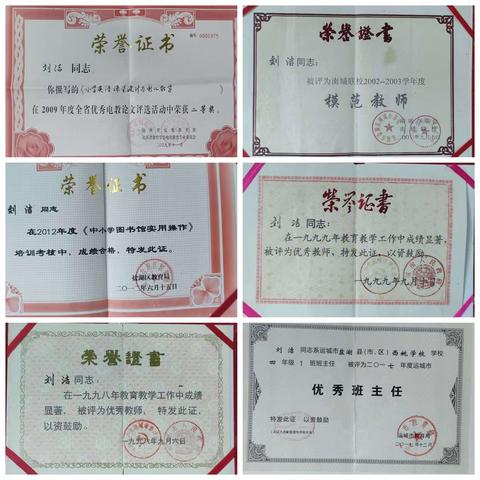 荣誉证书
编号:0001975
刘洁 同志
你撰写的《小学英语
在2009年度全省优秀电教论文评选活动中荣获二等奖。
二〇〇九年十一月
荣譽證書
刘洁同志:
被评为南城联校2002--2003学年度
模范教师
荣誉证书
刘洁 同志
在2012年度《中小学图书馆实用操作》
培训考核中，成绩合格，特发此证。
盐湖区教育局
二〇一二年六月十五日
榮誉证書
刘洁同志:
在一九九九年教育教学工作中成绩显著，
被评为优秀教师，特发此证，以资鼓励。
一九九九年九月
荣譽證書
刘洁同志:
在一九九八年教育教学工作中成绩
显著，被评为优秀教师，特发此证，
以资鼓励。
一九九八年九月六日
刘洁 同志系运城市盐湖县(市、区)西姚学校 学校
四年级1班班主任 被评为二〇一七年度运城市
优秀班主任
特发此证 以资鼓励
运城市教育局
二〇一七年十二月